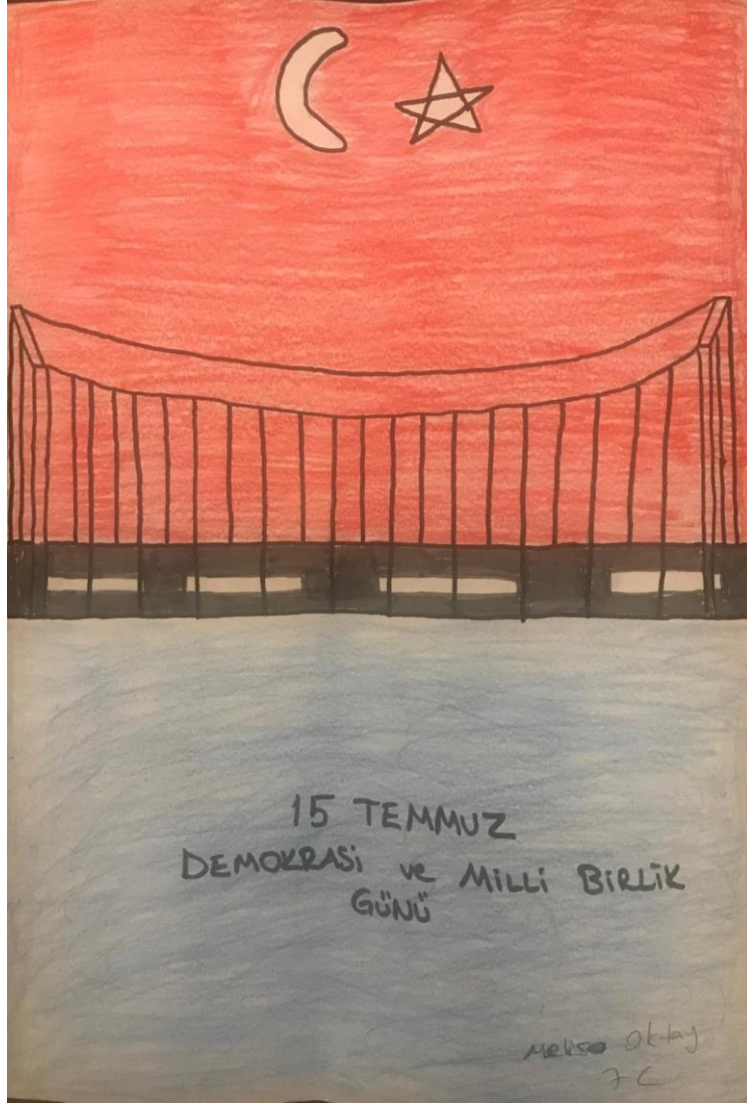 15 TEMMUZ
DEMOKRASi ve MiLLi BiRLiK
GÜNÜ
Melisa Oktay
7 C